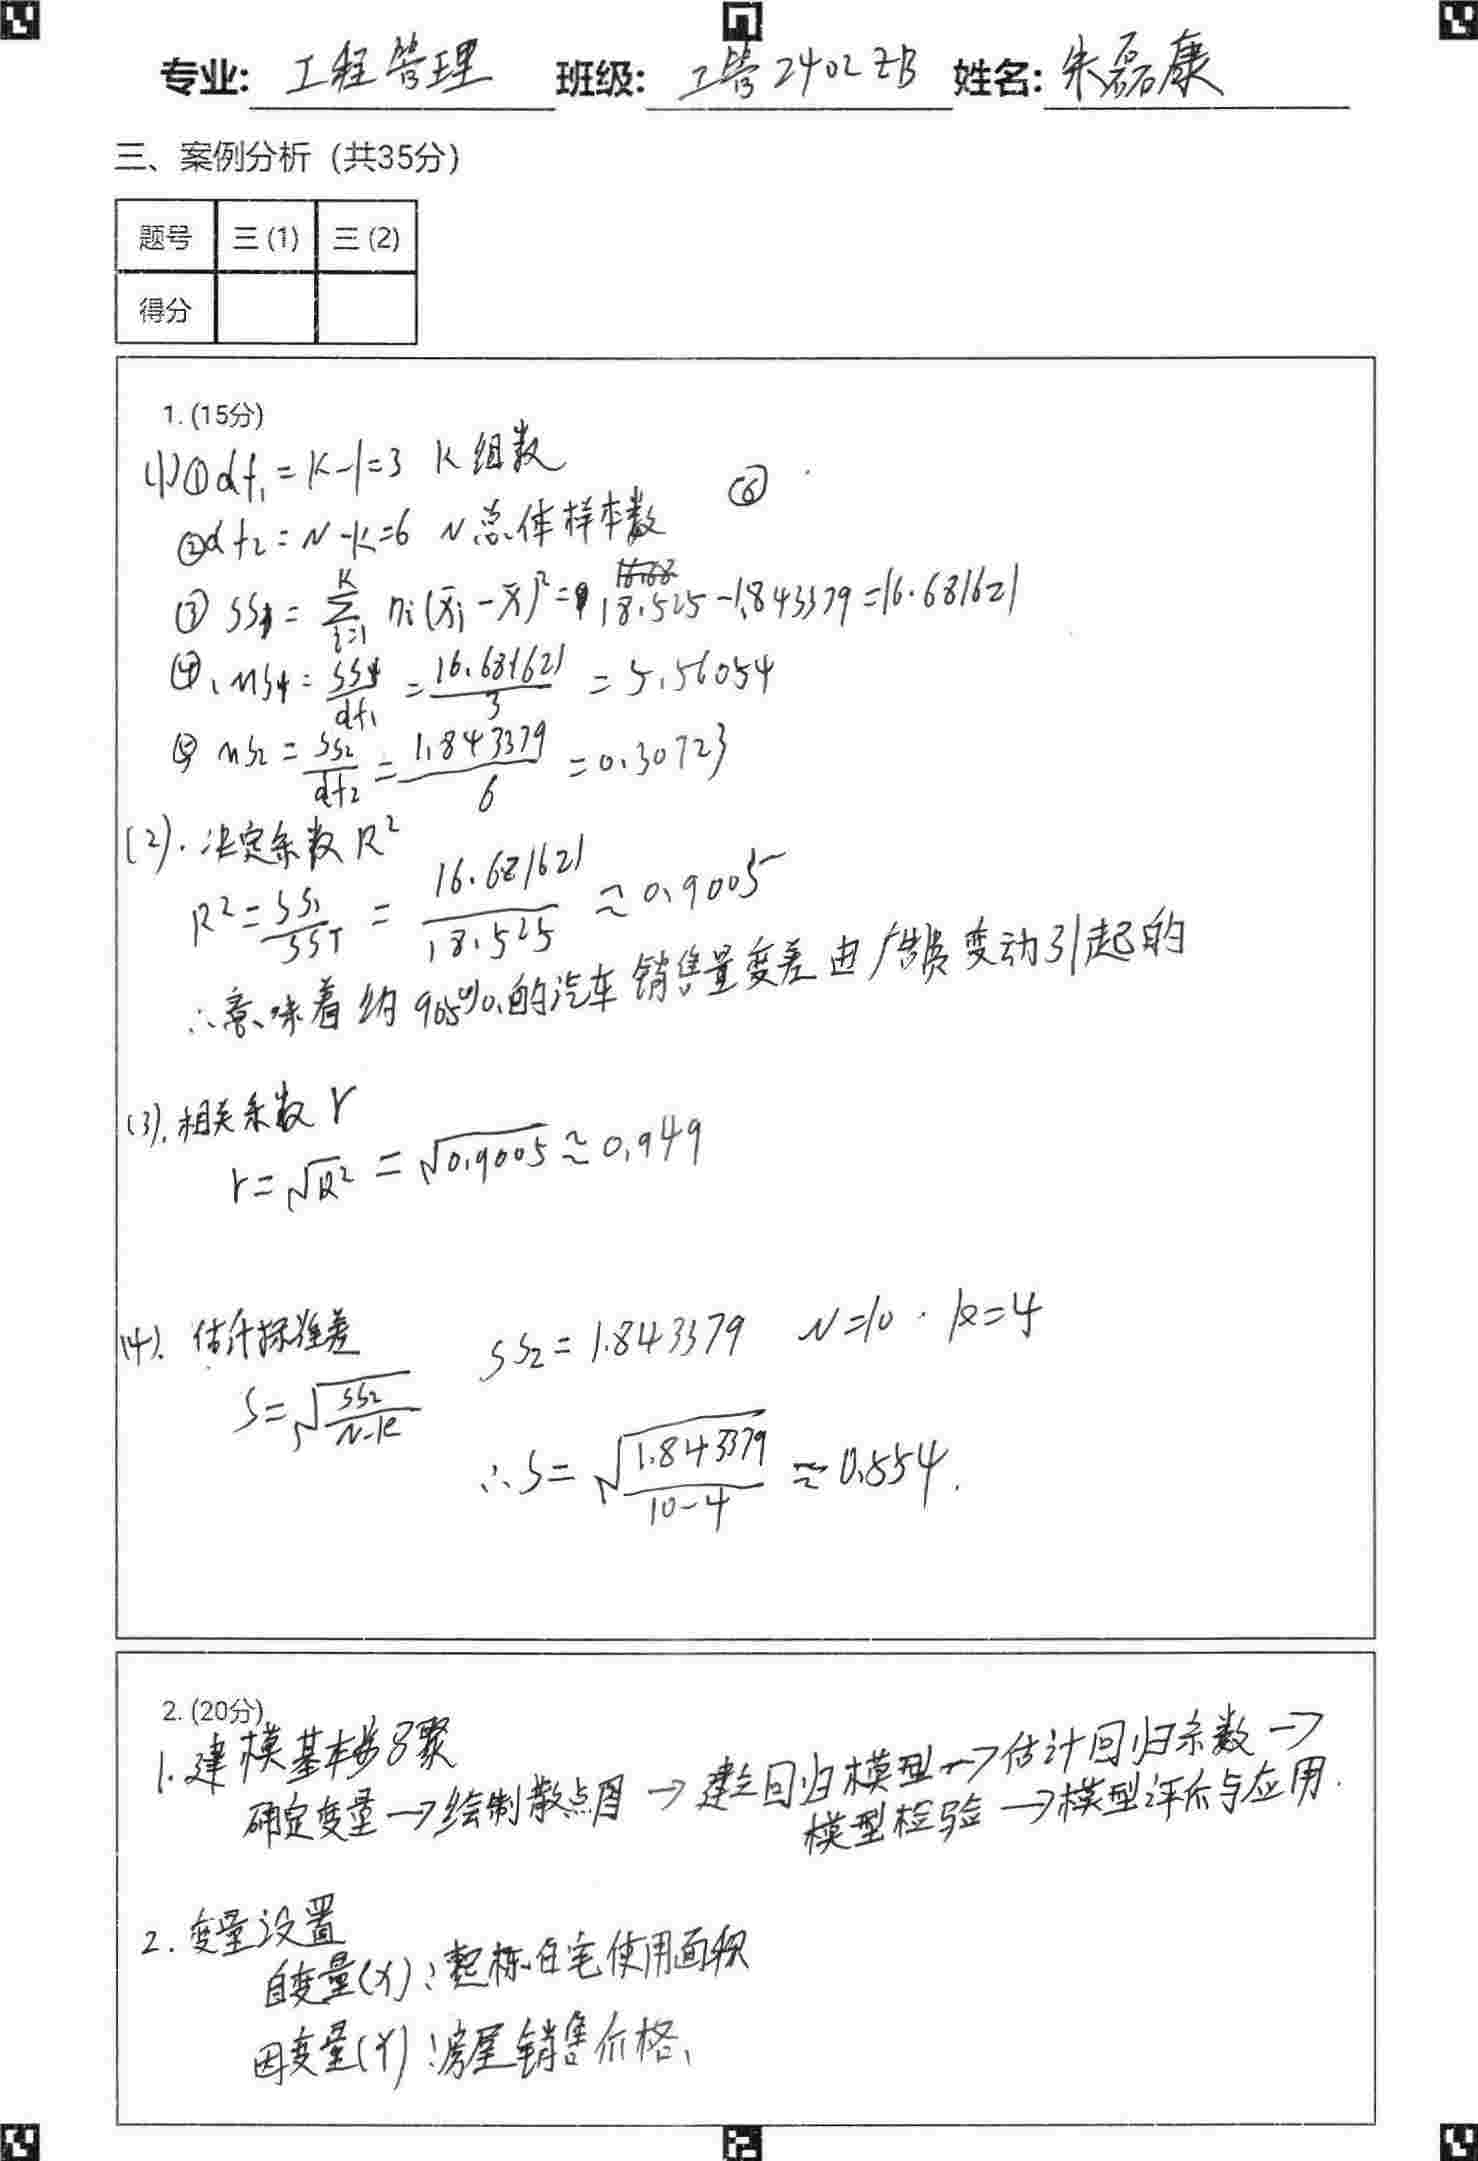 专业: 工程管理 班级: 工管2402ZB 姓名: 朱磊康
三、案例分析（共35分）
题号 三 (1) 三 (2)
得分
1. (15分)
(1) ① df₁ = K-1=3 K 组数
② df₂ = N-K=6 N 总体样本数 ⑥
③ SS₁ = ∑ᵢ₌₁ᴷ nᵢ(x̄ᵢ - x̄)² = 18.525 - 1.843379 = 16.681621
④、MS₁ = SS₁/df₁ = 16.681621/3 = 5.56054
⑤ MS₂ = SS₂/df₂ = 1.843379/6 = 0.30723
(2). 决定系数 R²
R² = SS₁/SST = 16.681621/18.525 ≈ 0.9005
∴意味着约 905%的汽车销售量变差由广告费变动引起的
(3). 相关系数 r
r = √R² = √0.9005 ≈ 0.949
(4). 估计标准差 SS₂ = 1.843379 N=10 · k=4
S = √(SS₂/(N-k))
∴ S = √(1.843379/(10-4)) ≈ 0.554.
2. (20分)
1. 建模基本步骤
确定变量 → 绘制散点图 → 建立回归模型 → 估计回归系数 →
模型检验 → 模型评价与应用.
2. 变量设置
自变量(X)：整栋住宅使用面积
因变量(Y)：房屋销售价格、